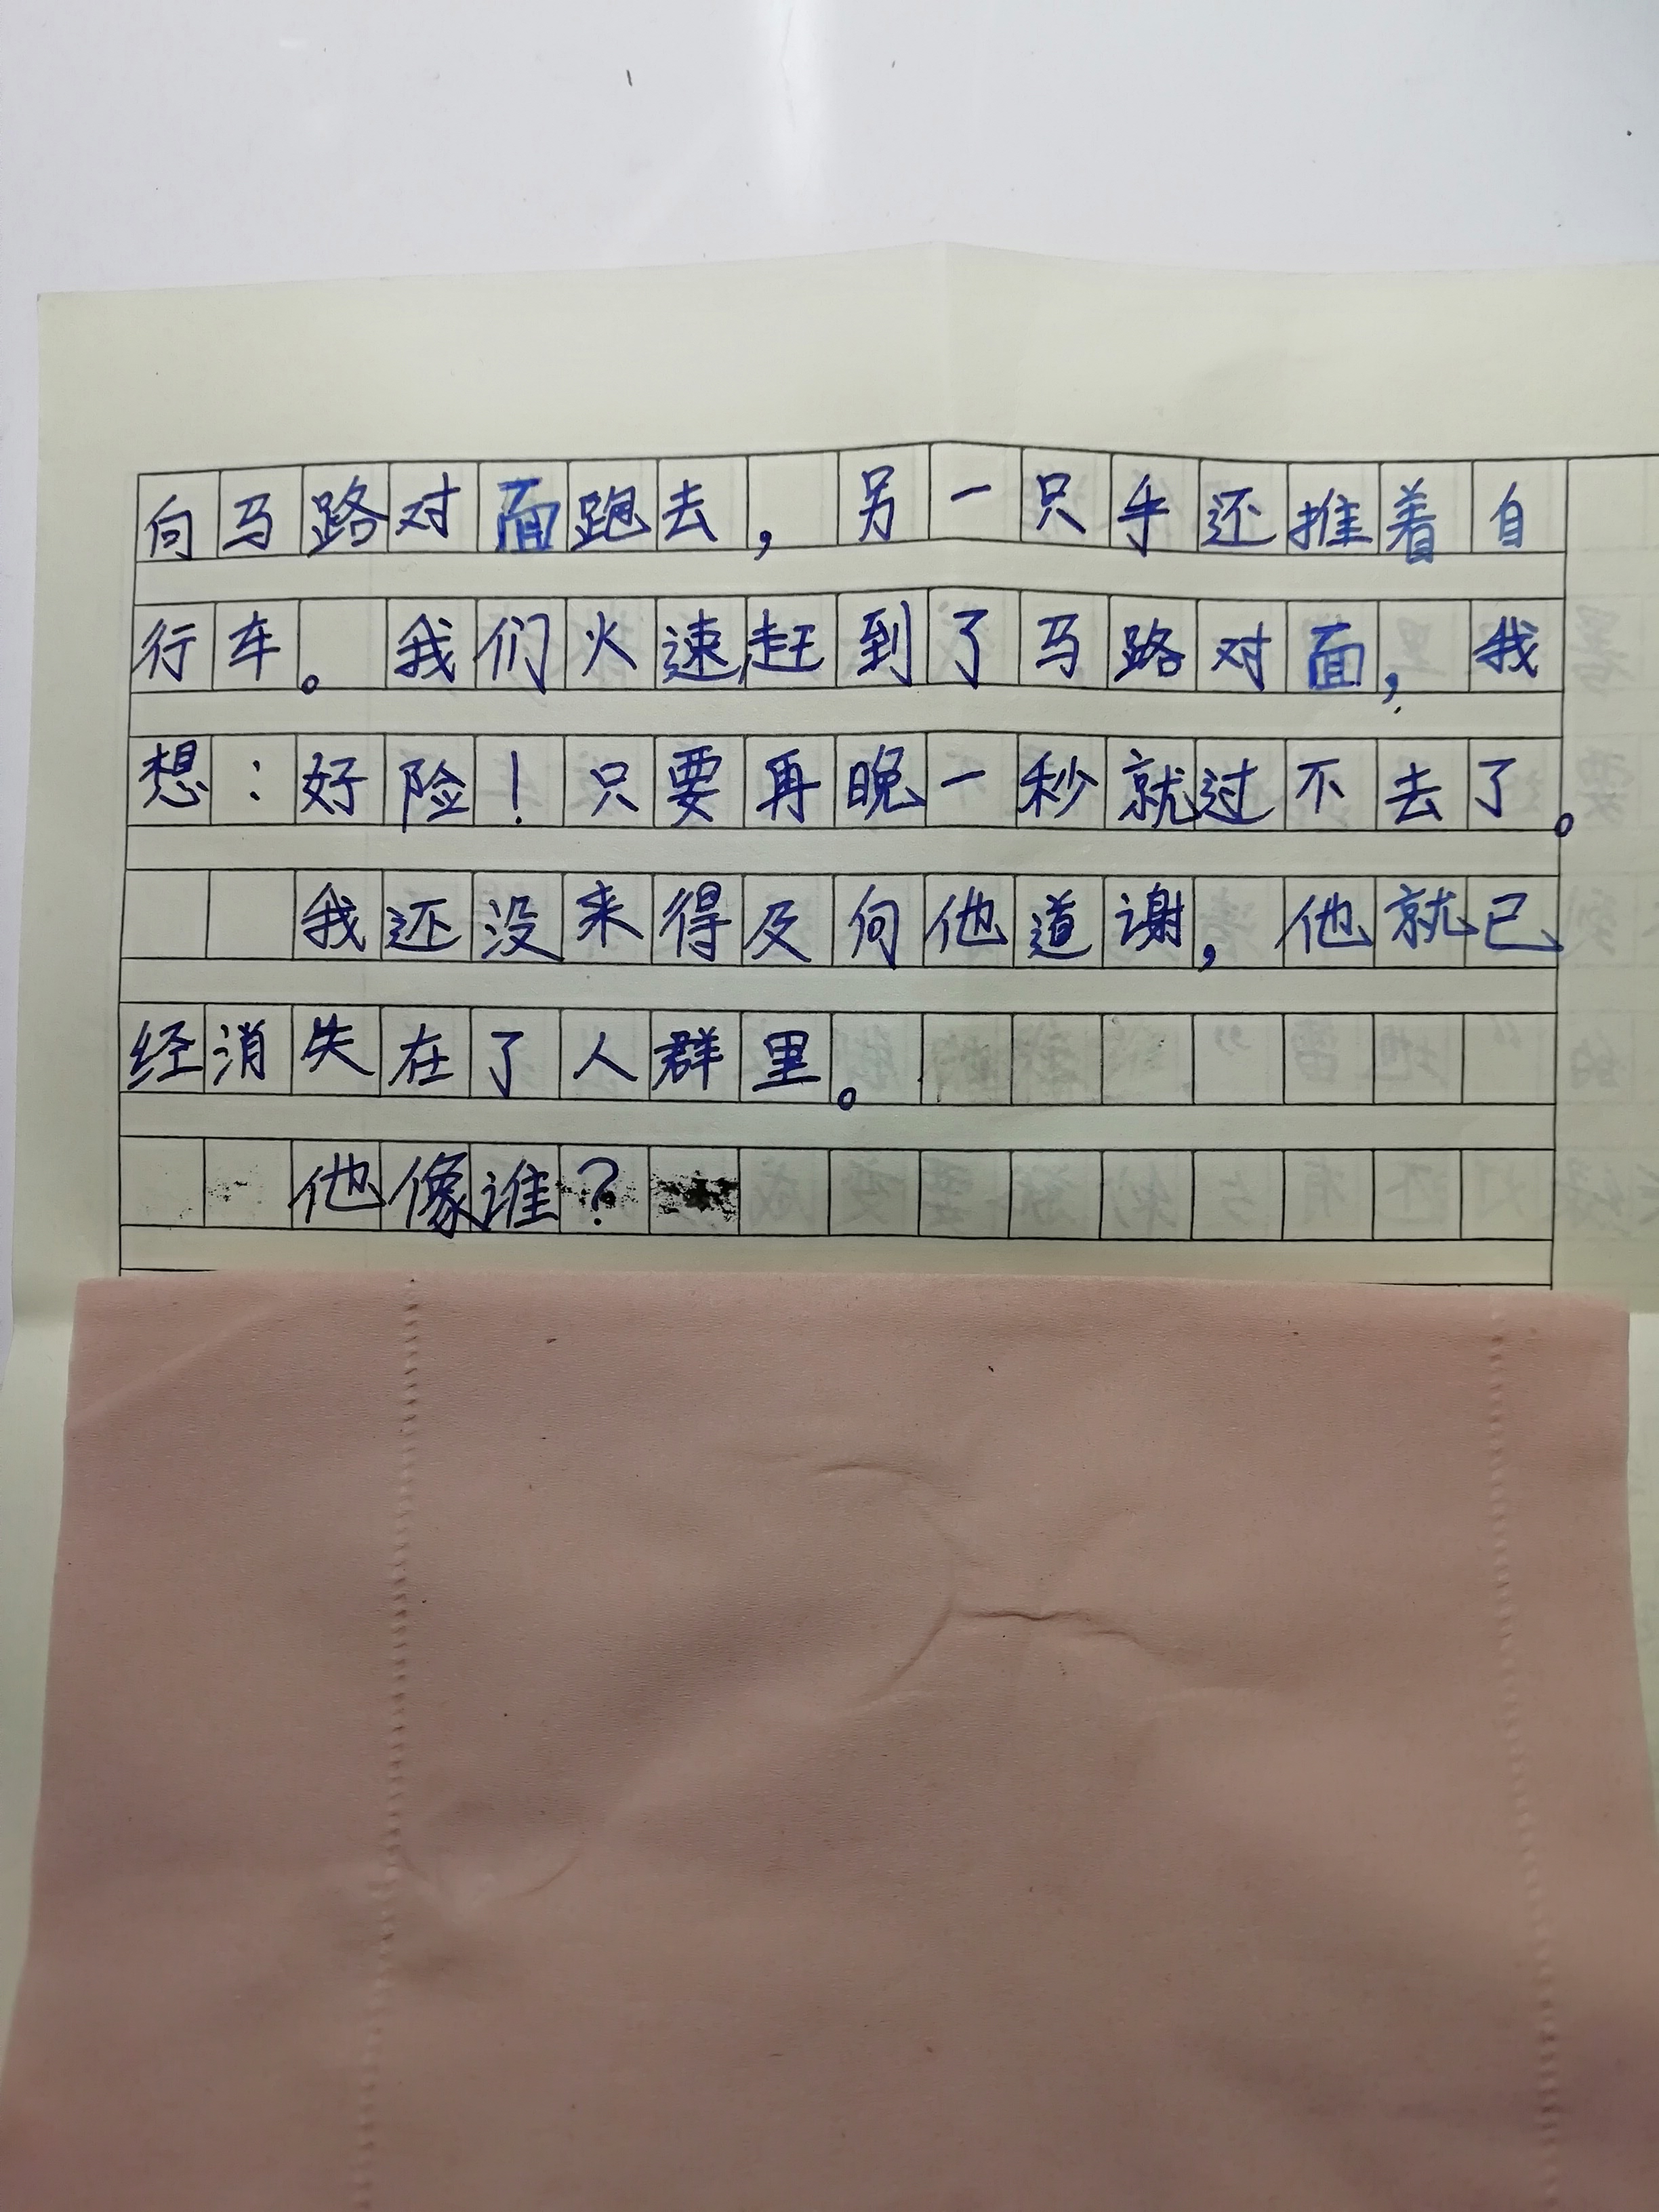 向马路对面跑去，另一只手还推着自
行车。我们火速赶到了马路对面，我
想：好险！只要再晚一秒就过不去了。
我还没来得及向他道谢，他就已
经消失在了人群里。
他像谁？